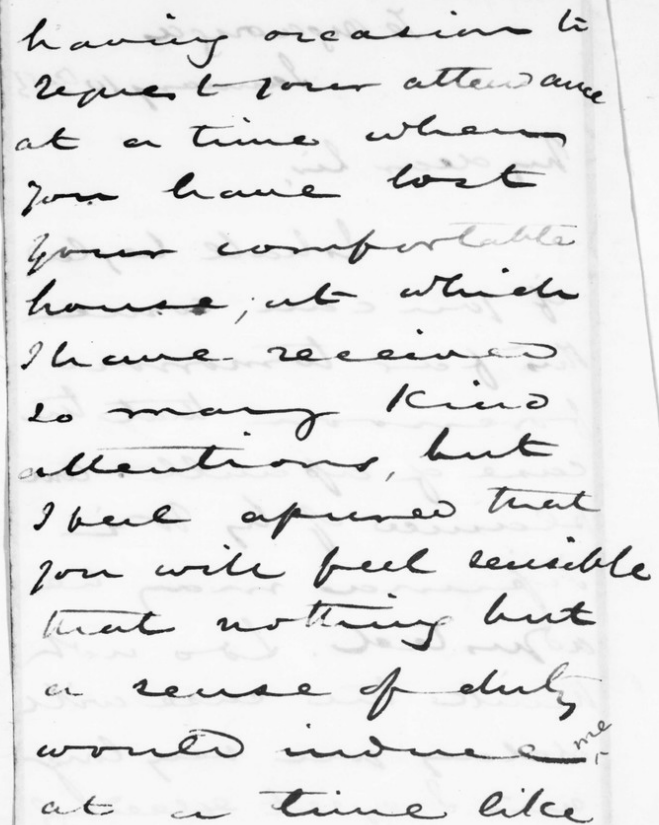 having occasion to
request your attendance
at a time when
you have lost
your comfortable
house, at which
I have received
so many kind
attentions, but
I feel assured that
you will feel sensible
that nothing but
a sense of duty
would induce me,
at a time like